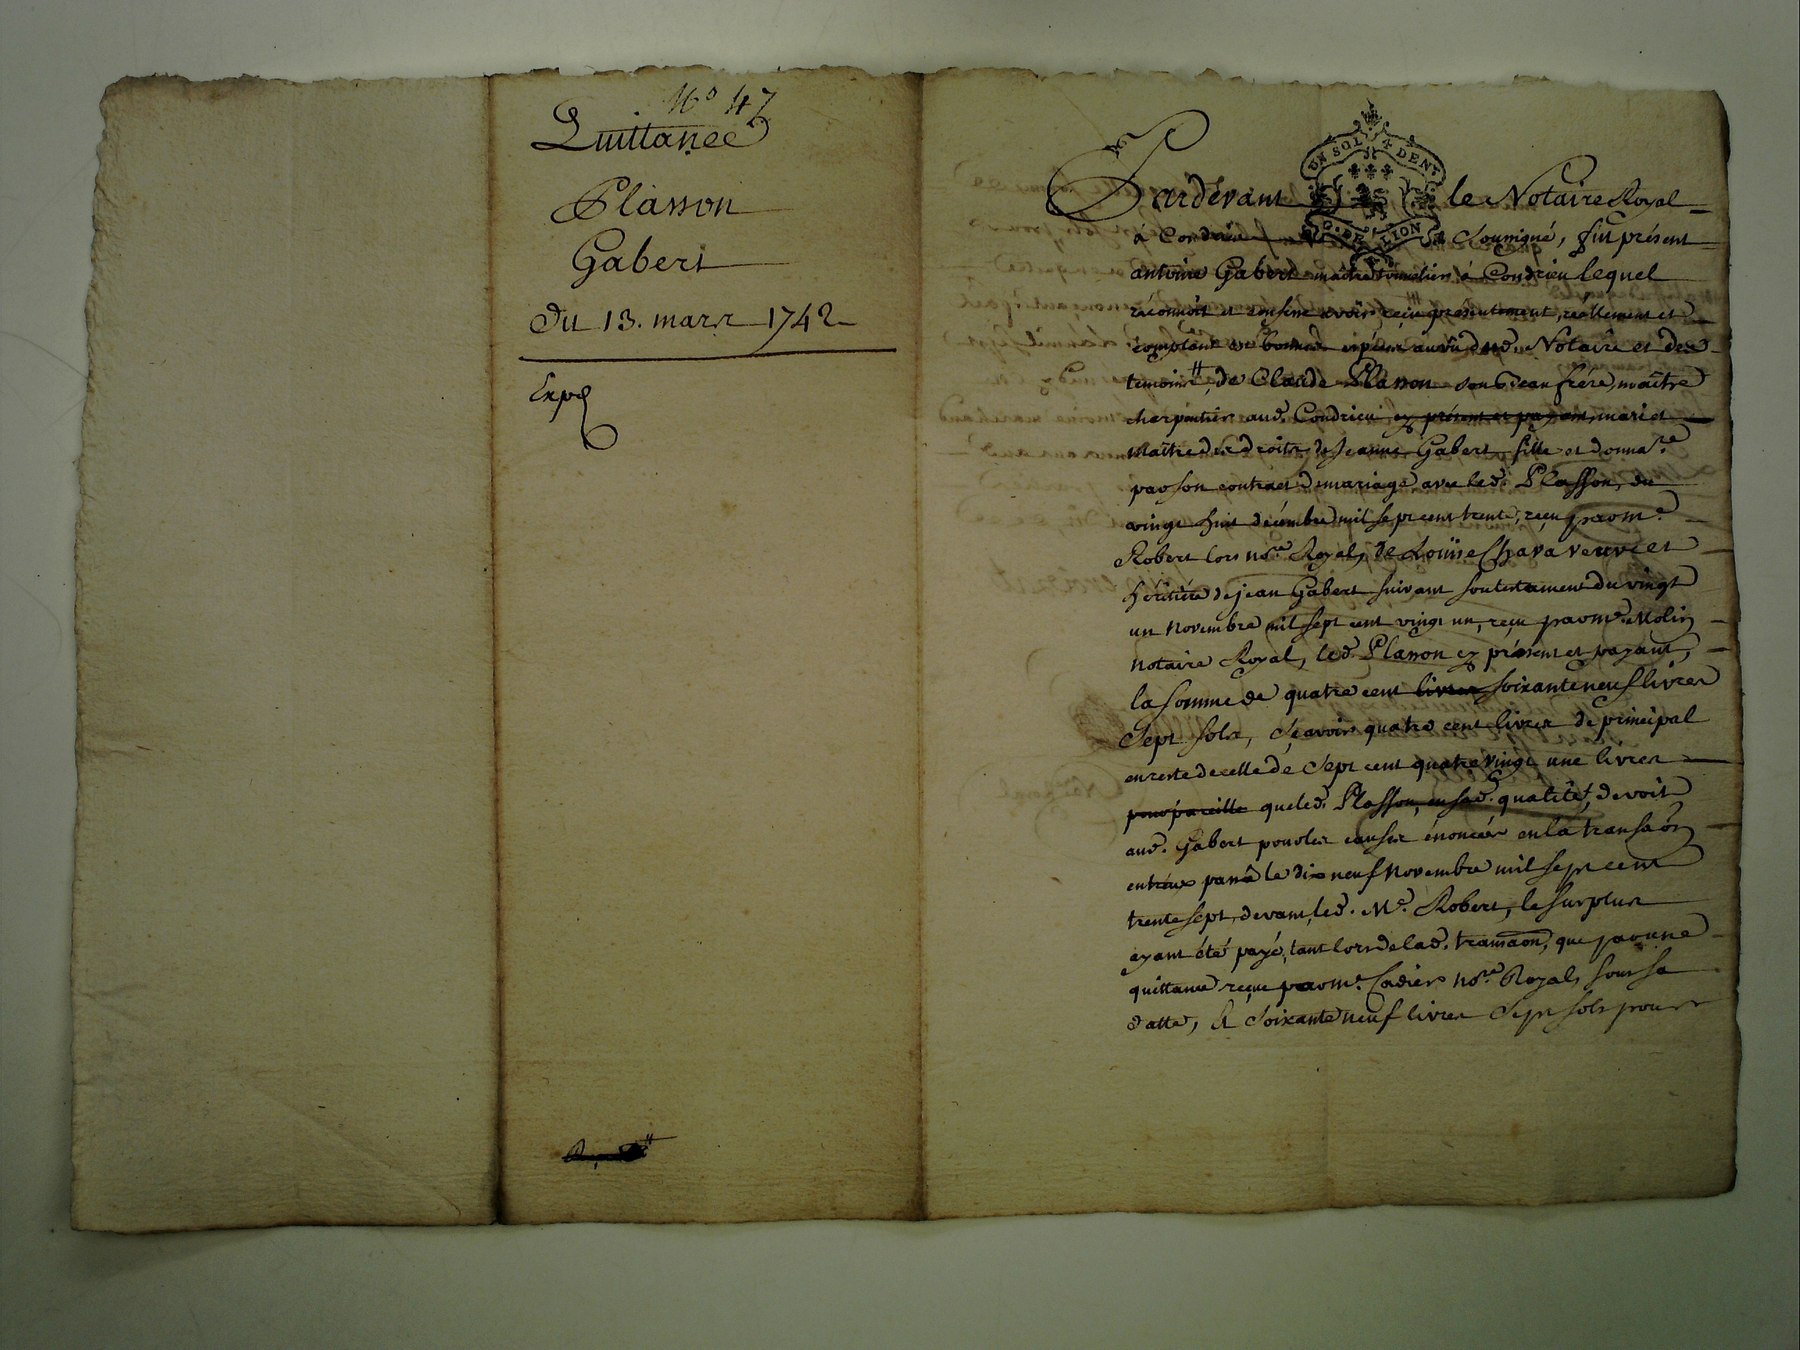 N° 47
Quittance
Plasson
Gabert
Du 13. mars 1742
Exp.
UN SOL 4 DEN.
G. DE LION
Pardevant le Notaire Royal
à Condrieu Soussigné, fut présent
antoine Gabert maitre tonnelier à Condrieu lequel
reconnoit et confesse avoir reçu présentement, réellement et
comptant en bonnes espèces au vû dud. Notaire et des
temoins, de Claude Plasson son beau frére, maître
charpentier aud. Condrieu cy présent et payant, mari et
Maitre des droits de Jeanne Gabert fille et donna.re
par son contract de mariage avec led. Plasson, du
vingt huit décembre mil sept cent trente, reçu par me.
Robert lors no.re Royal, de Loüise Chava veuve et
héritiére de jean Gabert suivant son testament du vingt
un novembre mil sept cent vingt un, reçu par me. Molin
notaire Royal, led. Plasson cy présent et payant,
la somme de quatre cent livres soixante neuf livres
Sept sols, Sçavoir quatre cent livres de principal
en reste de celle de Sept cent quatre vingt une livres
pour pareille que led. Plasson, en sad. qualité, devoit
aud. Gabert pour les causes énoncées en la transaôn
entreux passée le dix neuf Novembre mil sept cent
trente sept, devant led. Me. Robert, le surplus
ayant été payé, tant lors de lad. transaôn, que par une
quittance reçue par me. Cadier no.re Royal, sous sa
datte, & Soixante neuf livres Sept sols pour